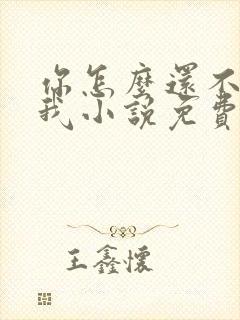 你怎麼還不
我小說免費
王鑫懷